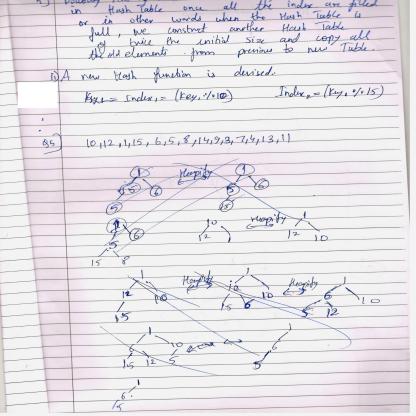 in Hash Table once all the index are filled
or in other words when the Hash Table is
full, we construct another Hash Table
of twice the initial size and copy all
the old elements from previous to new Table.
A new Hash function is devised.
Index, = (Key, % 10) Index, = (Key, % 15)
Q5) 10, 12, 1, 15, 6, 5, 8, 14, 9, 3, 7, 4, 13, 11
1 Heapify 1
5 6 5 6
15
5 10 Heapify 1
15 8 12 1 12 10
1 Heapify 1 Heapify 1
12 10 10 6 10
15 15 6 12
1 1
10 6
15 12 5 5
1
6
15